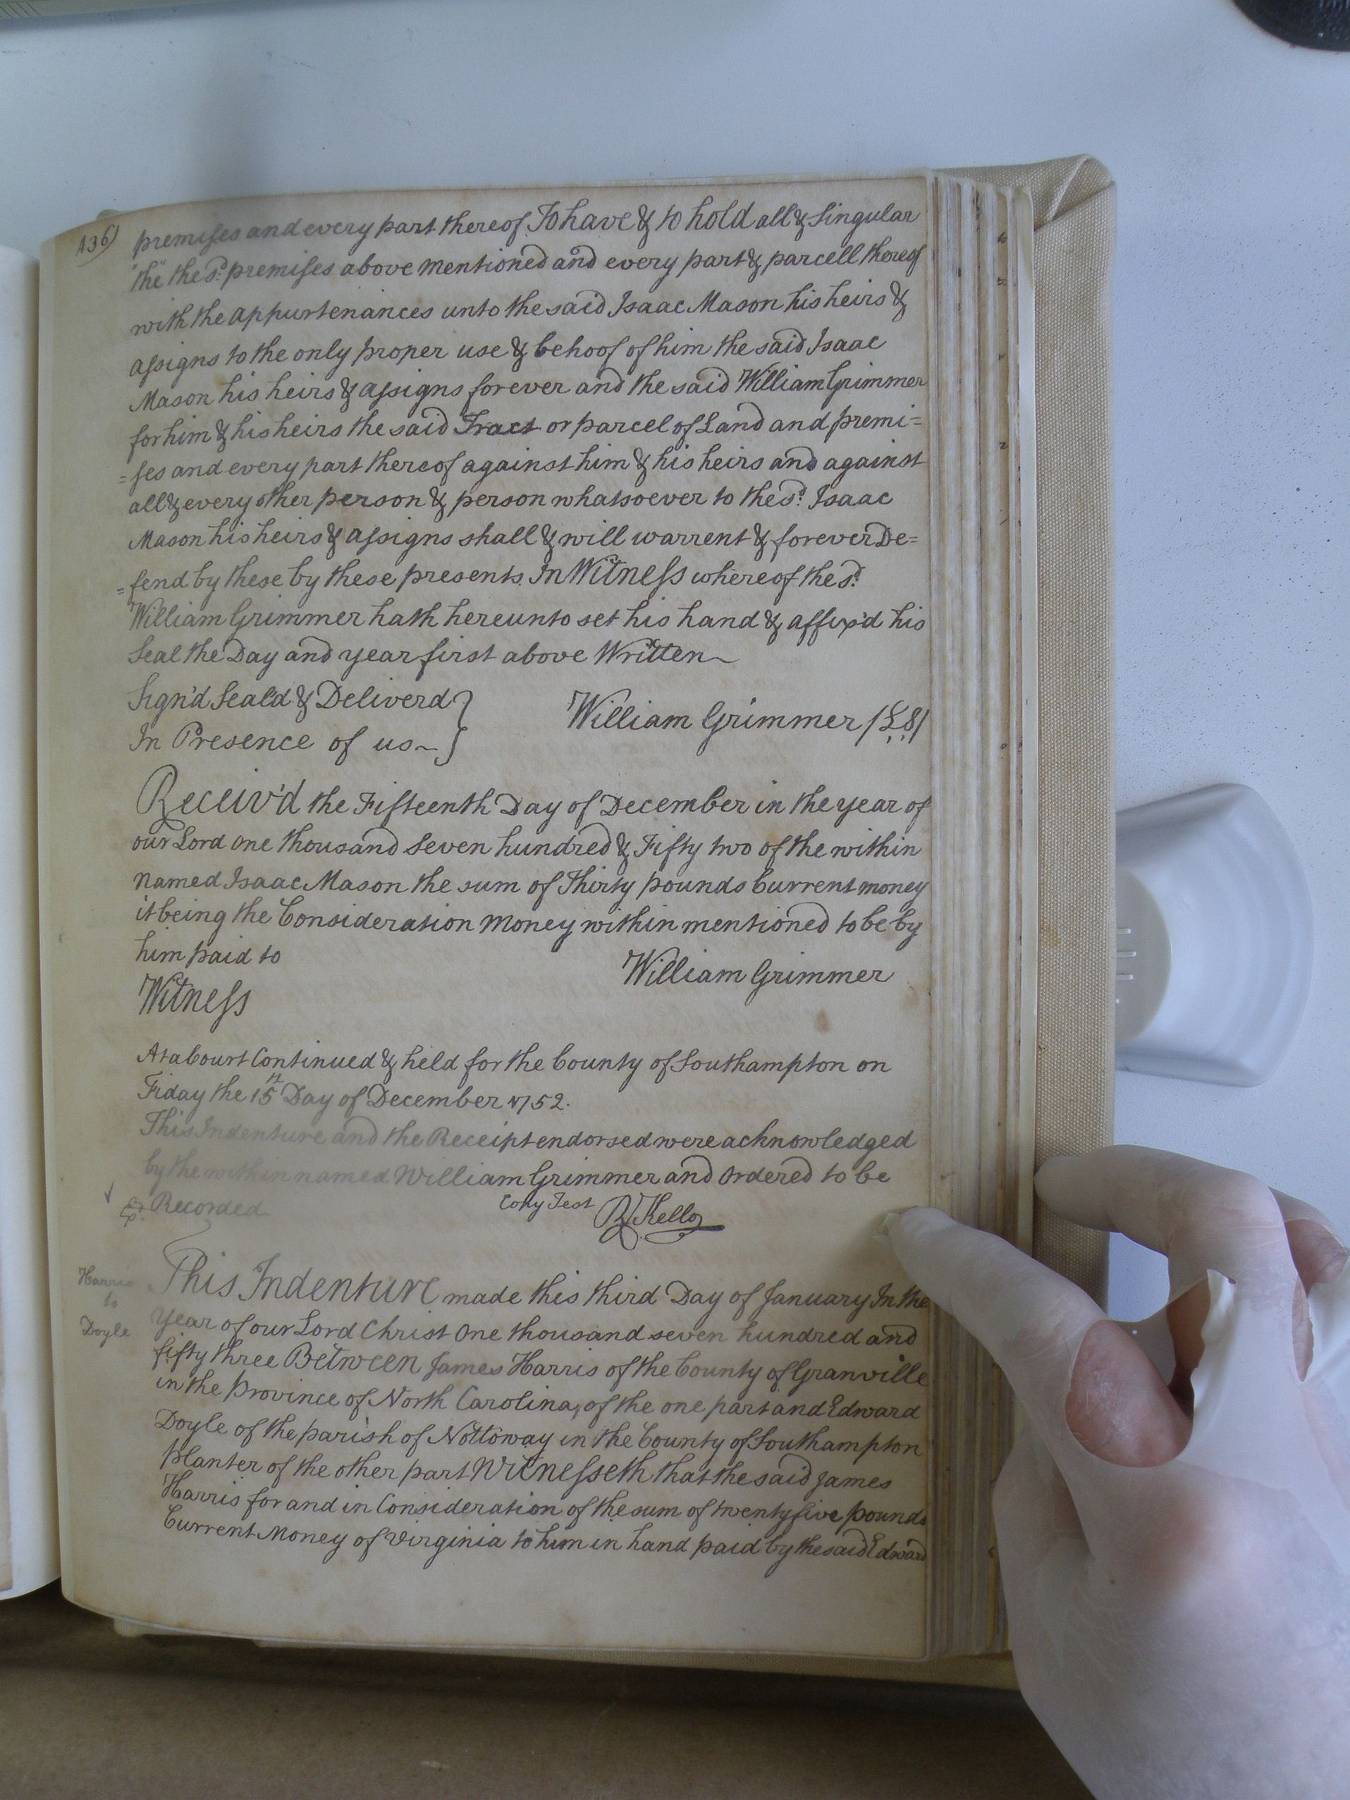 436)
premises and every part thereof To have & to hold all & Singular
"the" the sd. premises above mentioned and every part & parcell thereof
with the appurtenances unto the said Isaac Mason his heirs &
assigns to the only proper use & behoof of him the said Isaac
Mason his heirs & assigns forever and the said William Grimmer
for him & his heirs the said Tract or parcel of Land and premi=
=ses and every part thereof against him & his heirs and against
all & every other person & person whatsoever to the sd. Isaac
Mason his heirs & assigns shall & will warrent & forever De=
=fend by these by these presents In Witness whereof the sd.
William Grimmer hath hereunto set his hand & affix'd his
Seal the Day and year first above Written
Sign'd Seal'd & Deliverd }
In Presence of us }
William Grimmer (L.S)
Receiv'd the Fifteenth Day of December in the year of
our Lord one thousand Seven hundred & Fifty two of the within
named Isaac Mason the sum of Thirty pounds Current money
it being the Consideration Money within mentioned to be by
him paid to
William Grimmer
Witness
At a Court Continued & held for the County of Southampton on
Friday the 15th Day of December 1752.
This Indenture and the Receipt endorsed were acknowledged
by the within named William Grimmer and ordered to be
Recorded
Copy Test R Kello
Harris
to
Doyle
This Indenture made this third Day of January In the
Year of our Lord Christ One thousand seven hundred and
fifty three Between James Harris of the County of Granville
in the Province of North Carolina, of the one part and Edward
Doyle of the parish of Nottoway in the County of Southampton
Planter of the other part Witnesseth that the said James
Harris for and in Consideration of the sum of twenty five pounds
Current Money of Virginia to him in hand paid by the said Edward